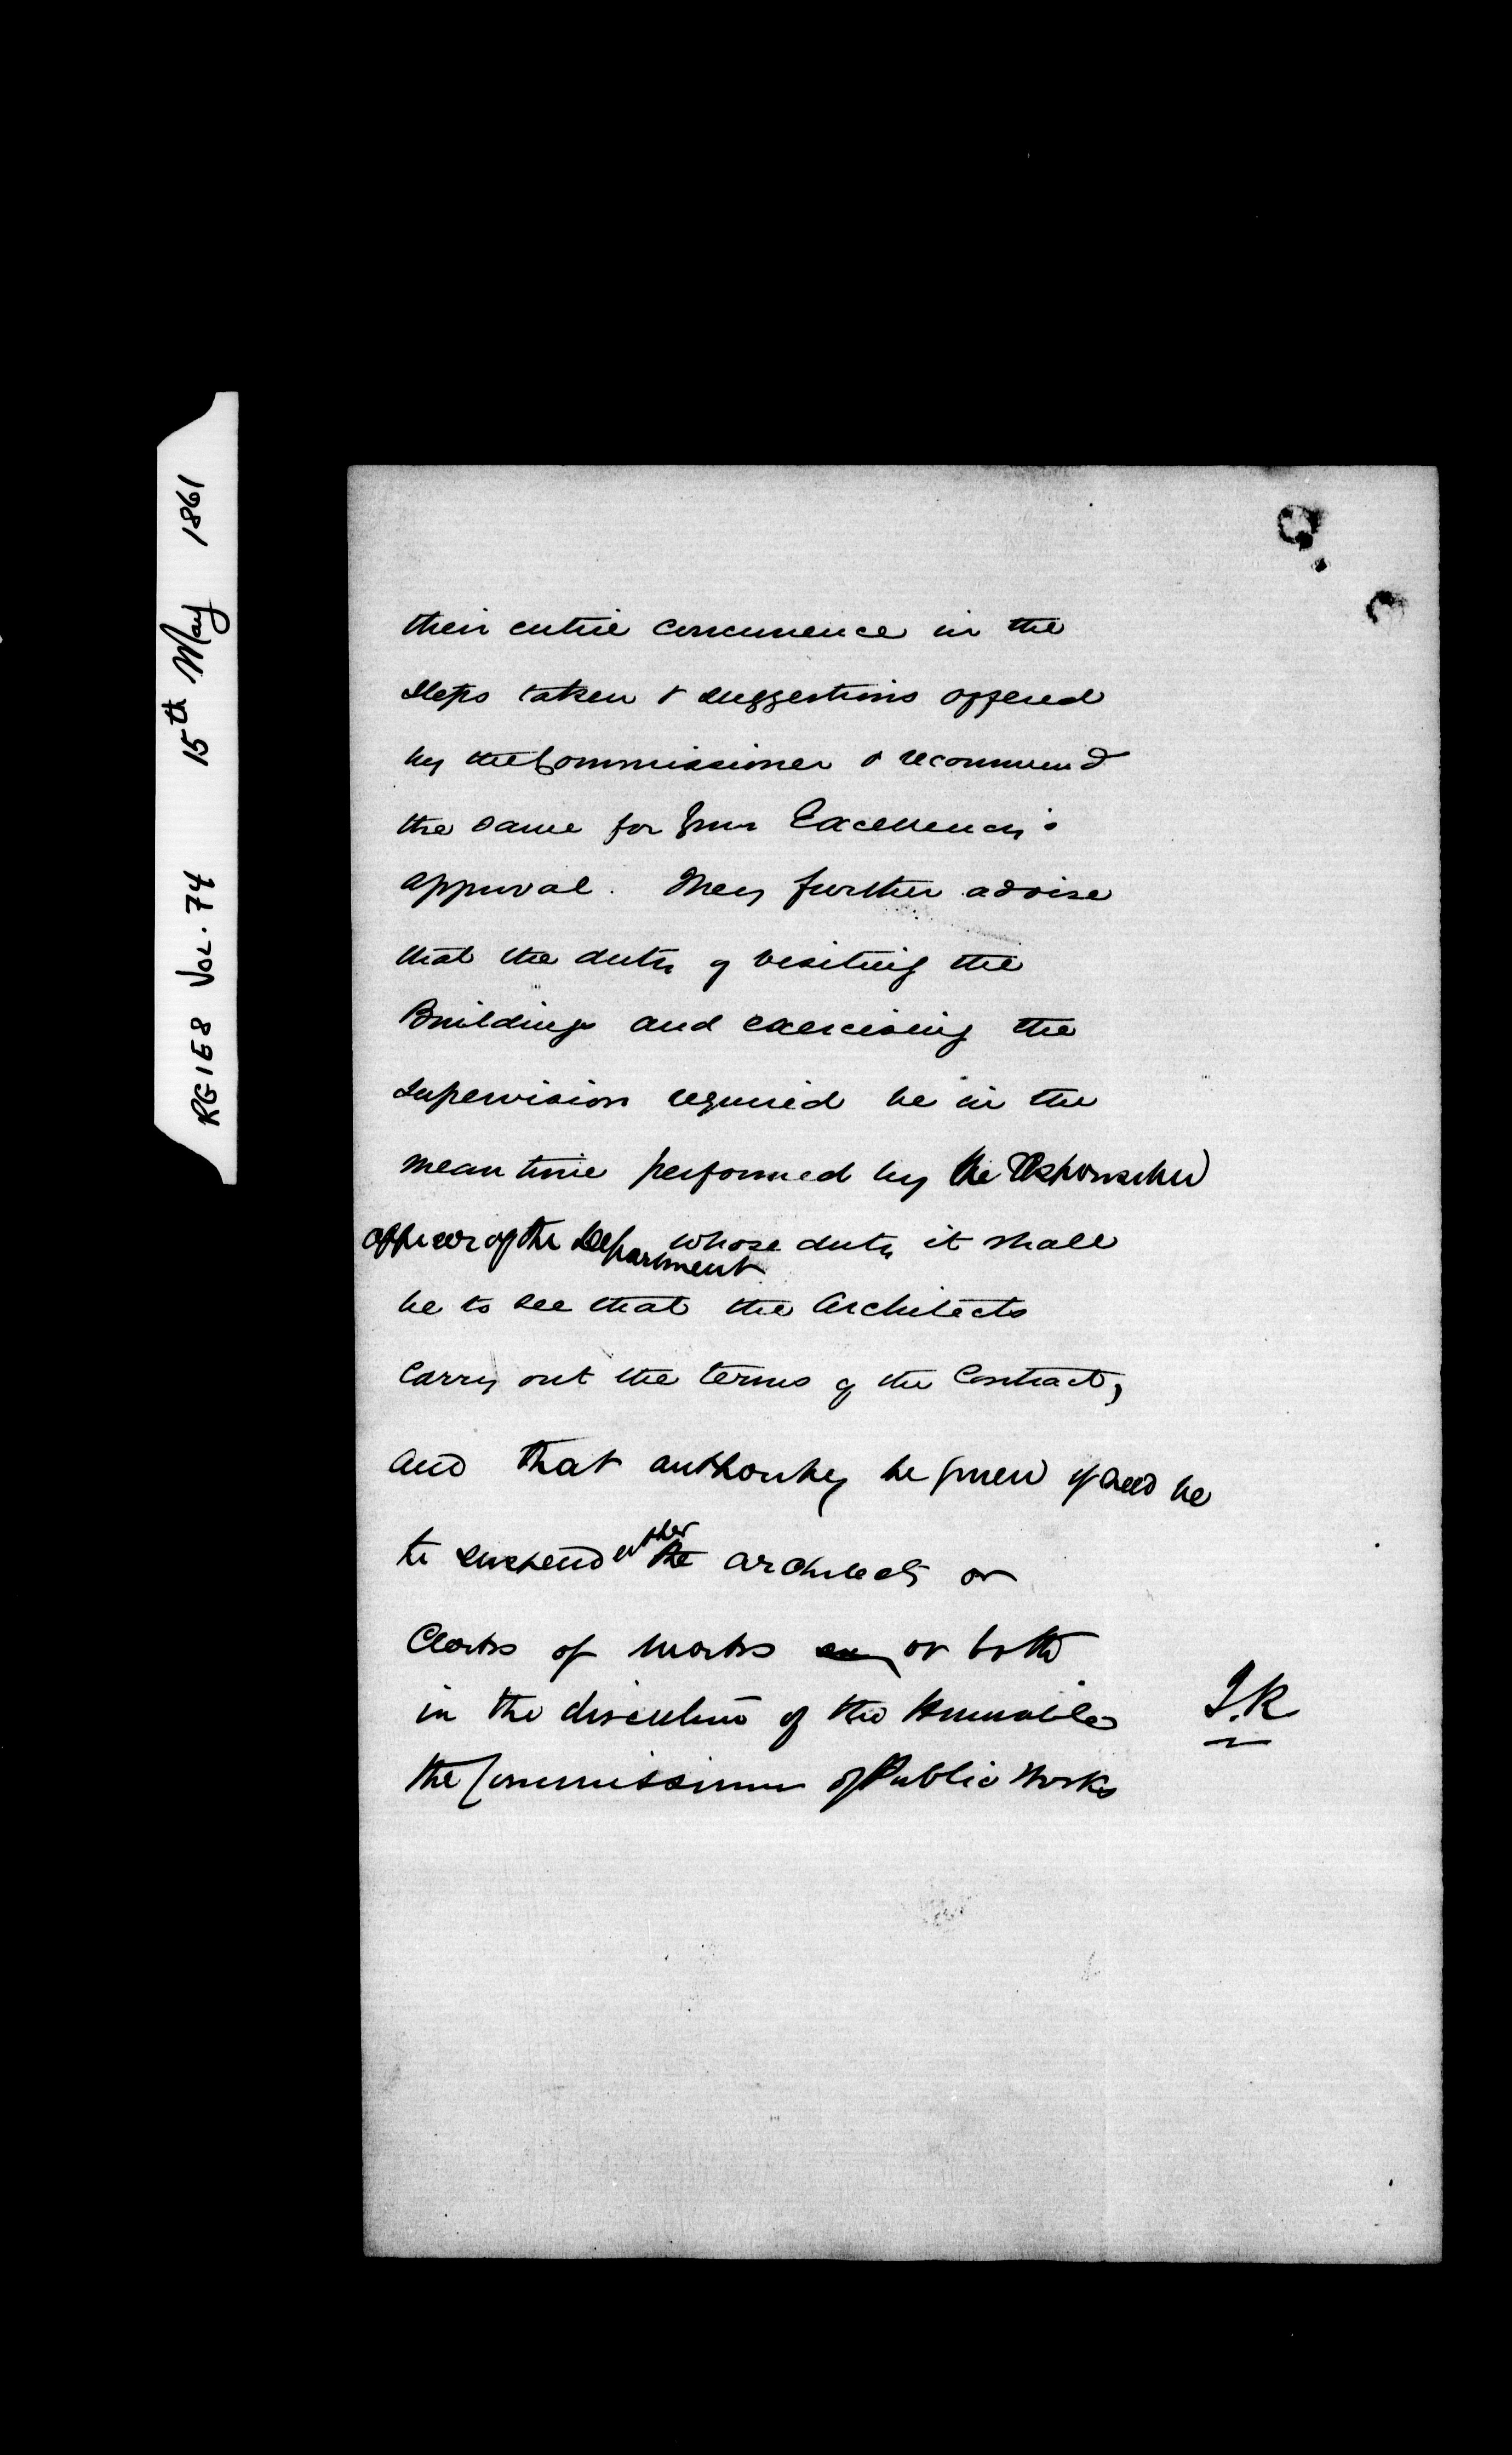 RG1E8 VOL. 74 15th May 1861
their entire concurrence in the
steps taken & suggestions offered
by the Commissioner & recommend
the same for Your Excellency's
approval. They further advise
that the duty of visiting the
Buildings and exercising the
supervision required be in the
mean time performed by the
officer of the Department whose duty it shall
be to see that the Architects
carry out the terms of the Contract,
and that authority be given if need be
to suspend either the architects or
Clerks of works or both
in the discretion of the Honorable
the Commissioner of Public Works
J.R